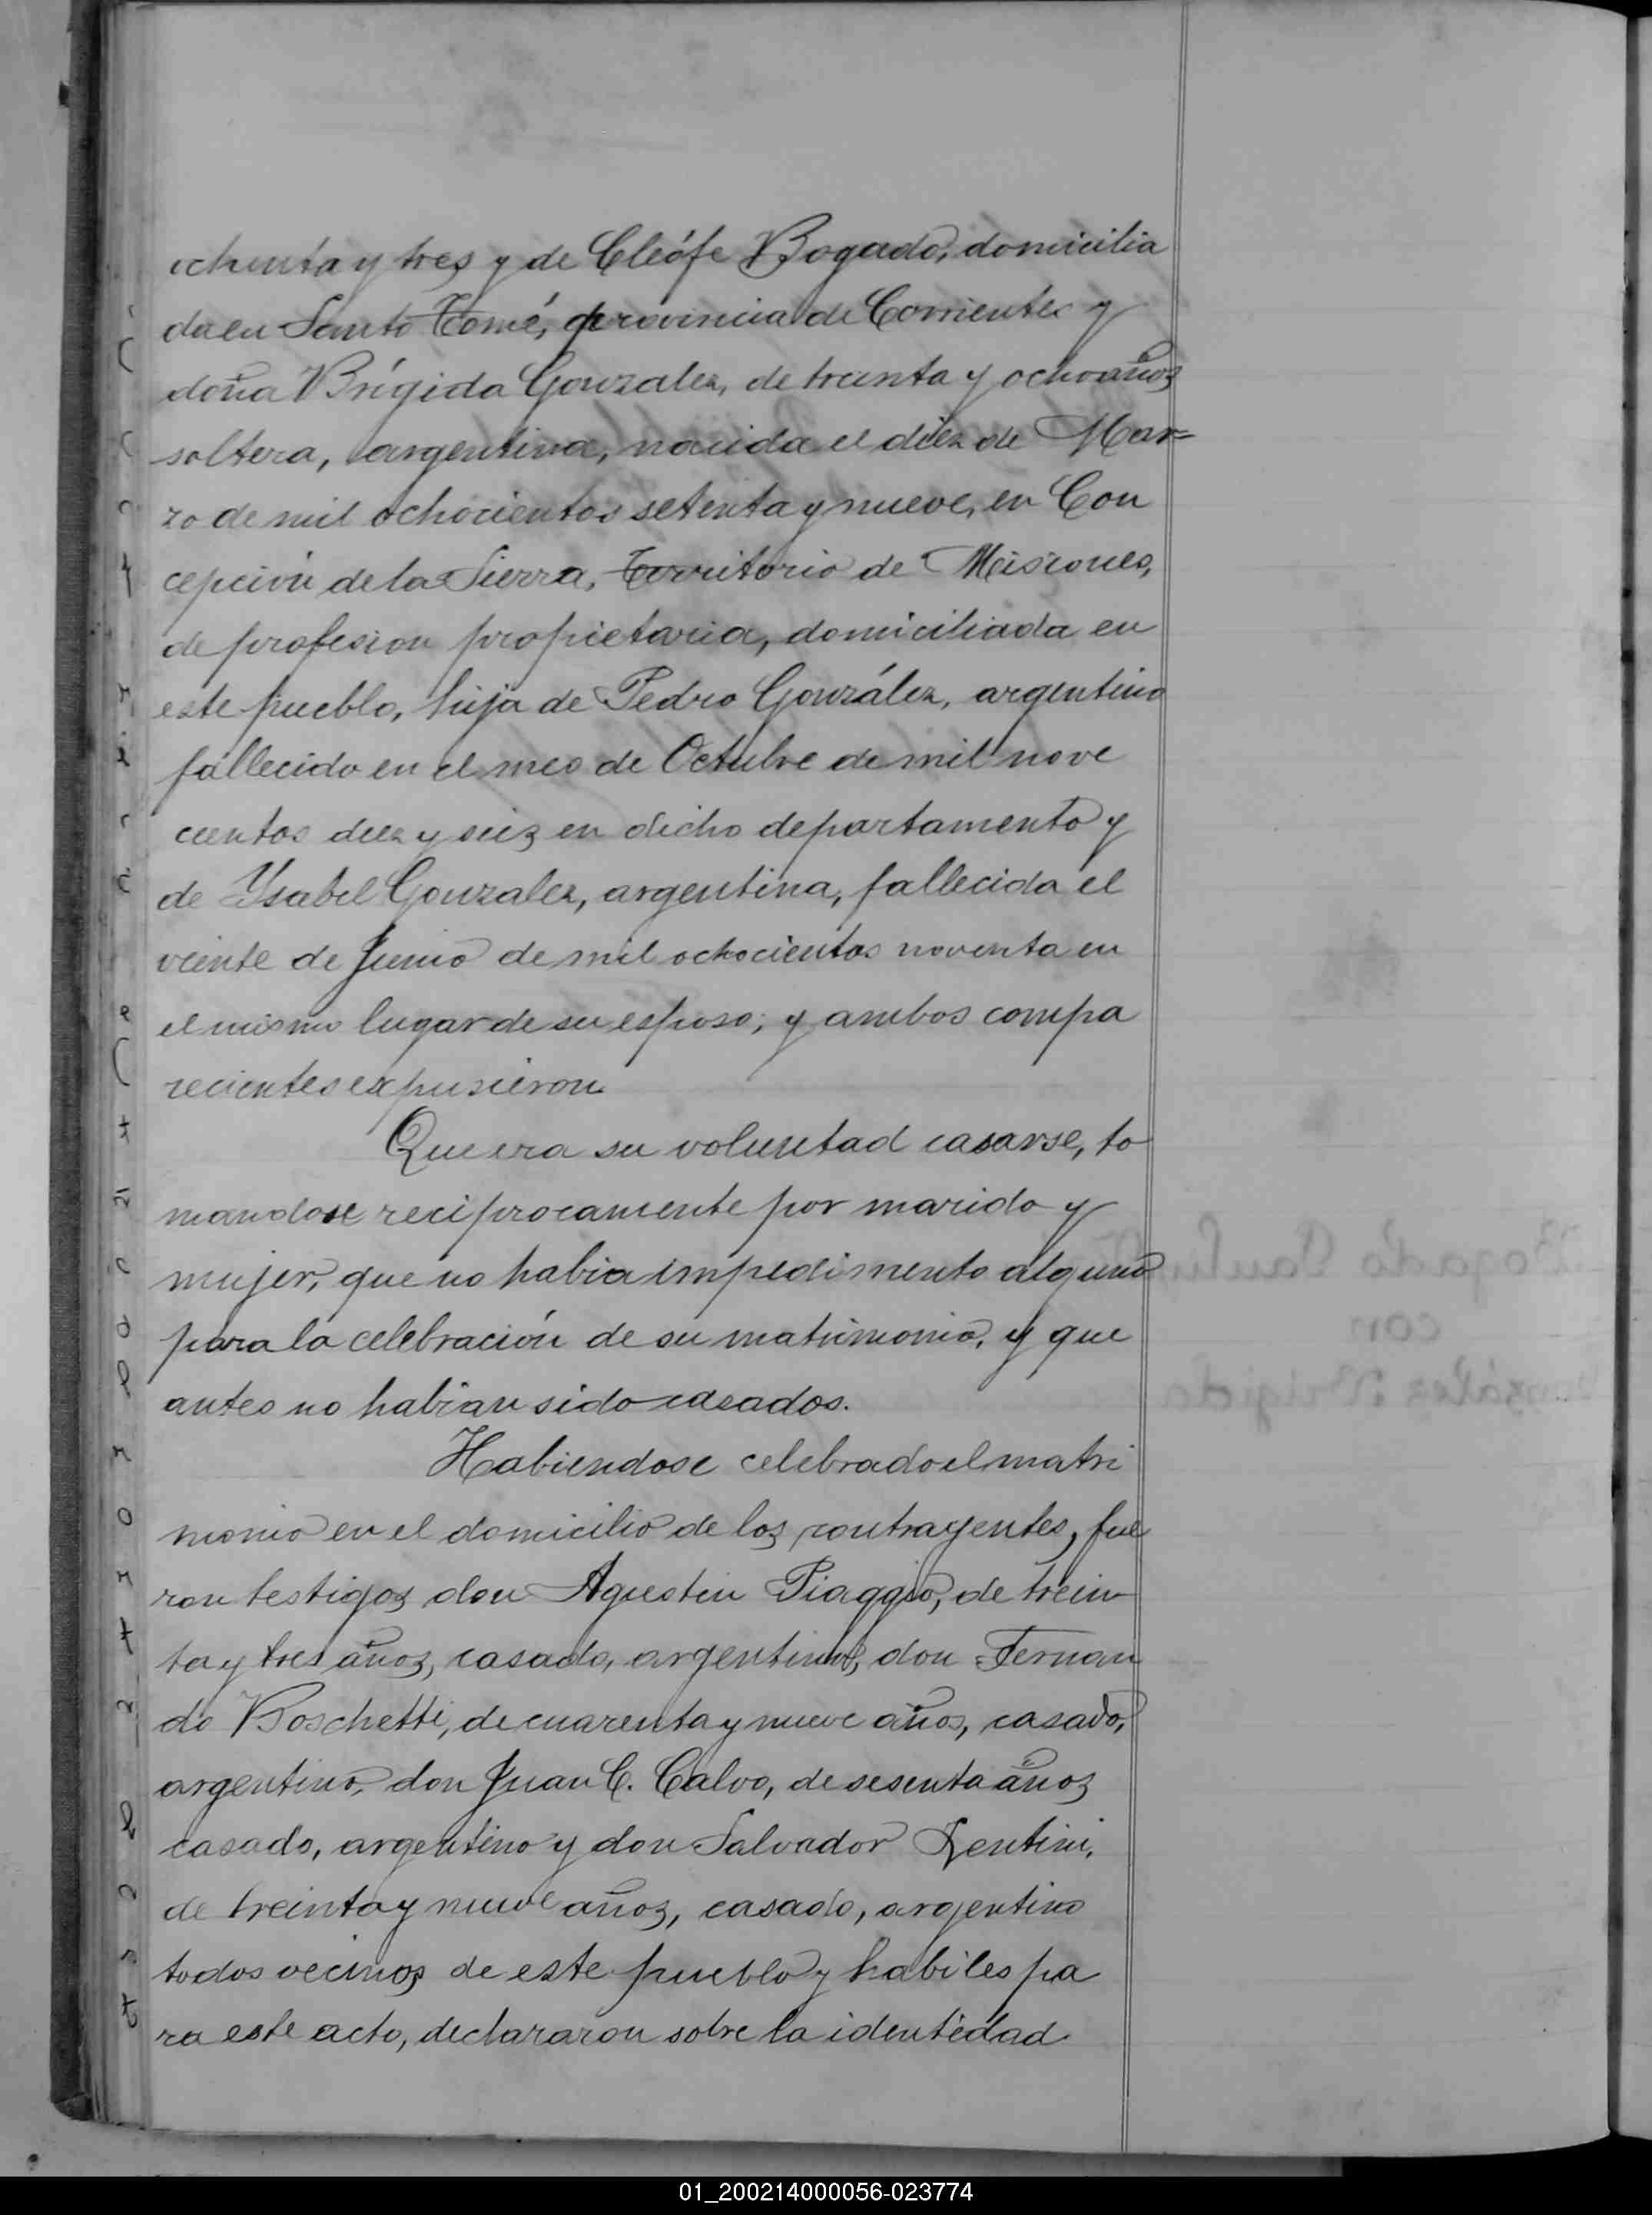 ochenta y tres y de Cleófe Bogado, domicilia
da en Santo Tomé, provincia de Corrientes y
doña Brígida Gonzalez, de treinta y ocho años
soltera, argentina, nacida el diez de Mar=
zo de mil ochocientos setenta y nueve, en Con
cepción de la Sierra, Territorio de Misiones,
de profesion propietaria, domiciliada en
este pueblo, hija de Pedro González, argentino
fallecido en el mes de Octubre de mil nove
cientos diez y seiz en dicho departamento y
de Ysabel Gonzalez, argentina, fallecida el
veinte de Junio de mil ochocientos noventa en
el mismo lugar de su esposo; y ambos compa
recientes expusieron
Que era su voluntad casarse, to
mandose reciprocamente por marido y
mujer, que no habia impedimento alguno
para la celebración de su matrimonio, y que
antes no habian sido casados.
Habiendose celebrado el matri
monio en el domicilio de los contrayentes, fue
ron testigos don Agustin Piaggio, de trein
ta y tres años, casado, argentino, don Fernan
do Boschetti, de cuarenta y nueve años, casado,
argentino, don Juan C. Calvo, de sesenta años
casado, argentino y don Salvador Lentini,
de treinta y nueve años, casado, argentino
todos vecinos de este pueblo y habiles pa
ra este acto, declararon sobre la identidad
01_200214000056-023774